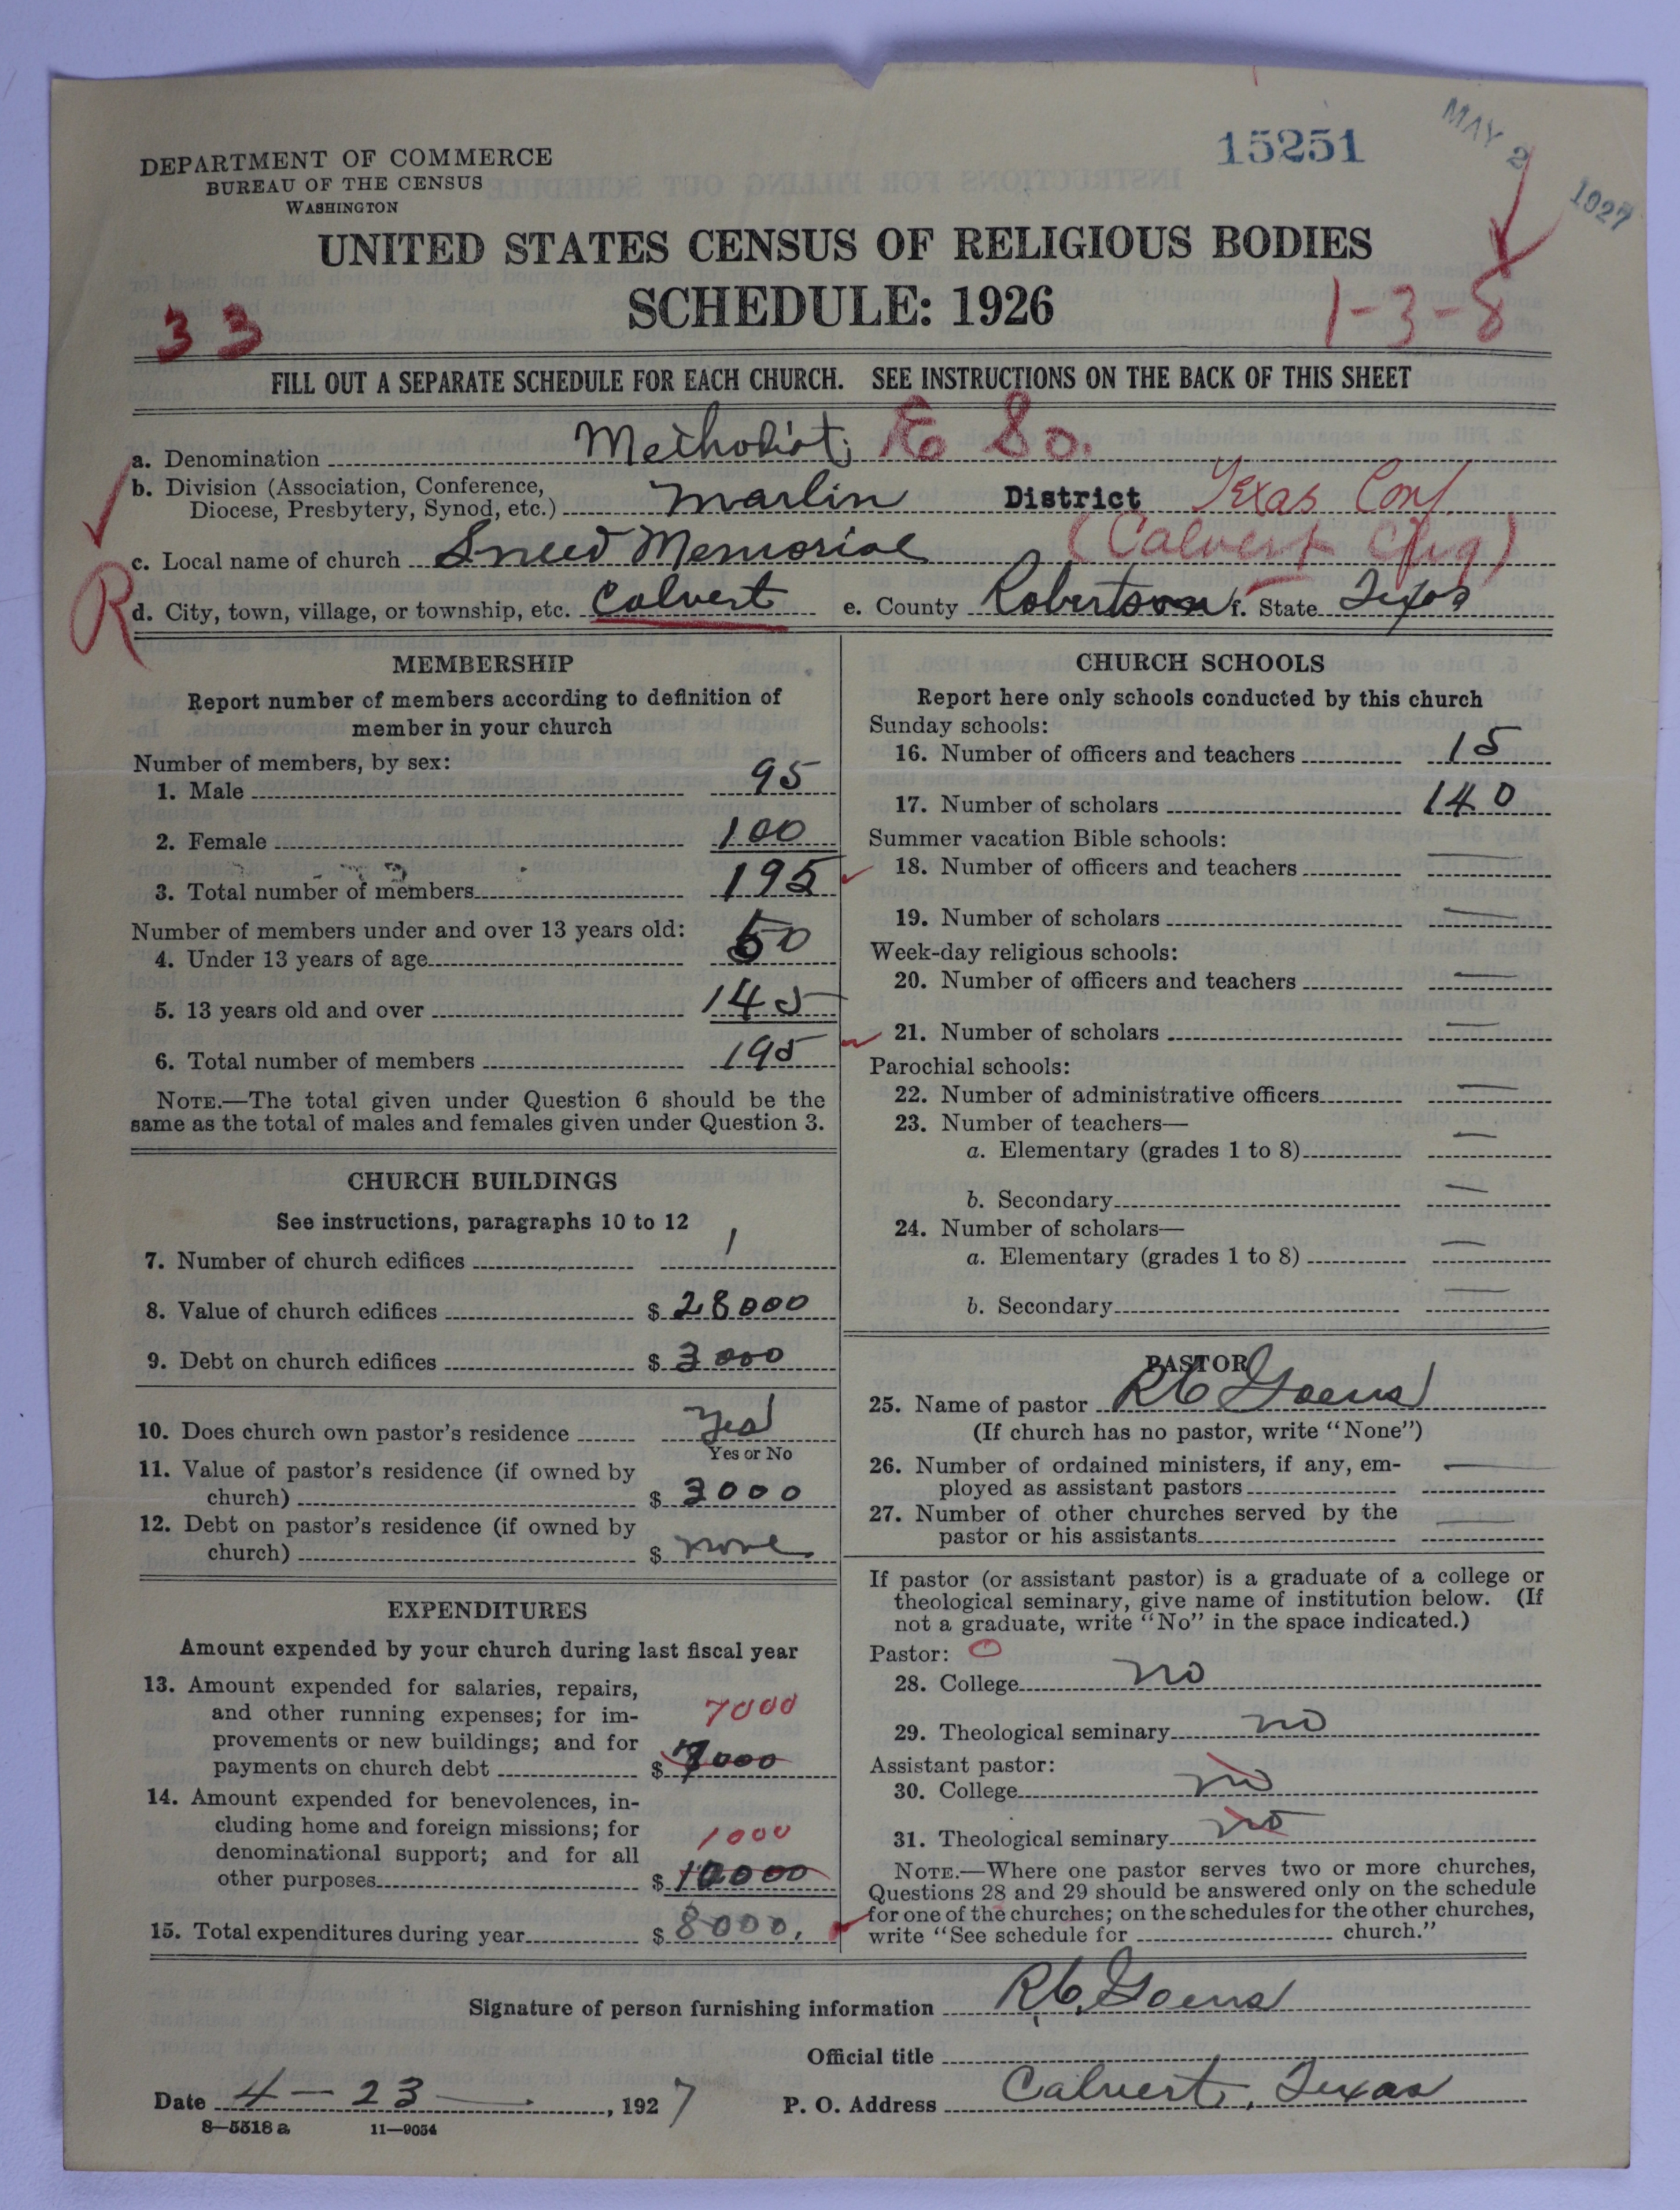 15251
MAY 2 1927
DEPARTMENT OF COMMERCE
BUREAU OF THE CENSUS
WASHINGTON
UNITED STATES CENSUS OF RELIGIOUS BODIES
SCHEDULE: 1926
33
1-3-8
FILL OUT A SEPARATE SCHEDULE FOR EACH CHURCH. SEE INSTRUCTIONS ON THE BACK OF THIS SHEET
a. Denomination Methodist; E So.
b. Division (Association, Conference,
Diocese, Presbytery, Synod, etc.) Marlin District Texas Conf.
c. Local name of church Sneed Memorial (Calvert Chg)
R
d. City, town, village, or township, etc. Calvert e. County Robertson f. State Texas
MEMBERSHIP
Report number of members according to definition of
member in your church
Number of members, by sex:
1. Male 95
2. Female 100
3. Total number of members 195
Number of members under and over 13 years old:
4. Under 13 years of age 50
5. 13 years old and over 145
6. Total number of members 195
NOTE.—The total given under Question 6 should be the
same as the total of males and females given under Question 3.
CHURCH BUILDINGS
See instructions, paragraphs 10 to 12
7. Number of church edifices 1
8. Value of church edifices $ 28000
9. Debt on church edifices $ 3000
10. Does church own pastor's residence Yes
Yes or No
11. Value of pastor's residence (if owned by
church) $ 3000
12. Debt on pastor's residence (if owned by
church) $ none
EXPENDITURES
Amount expended by your church during last fiscal year
13. Amount expended for salaries, repairs,
and other running expenses; for im-
7000
provements or new buildings; and for
payments on church debt $ 7000
14. Amount expended for benevolences, in-
cluding home and foreign missions; for
1000
denominational support; and for all
other purposes $ 10000
15. Total expenditures during year $ 8000.
CHURCH SCHOOLS
Report here only schools conducted by this church
Sunday schools:
16. Number of officers and teachers 15
17. Number of scholars 140
Summer vacation Bible schools:
18. Number of officers and teachers —
19. Number of scholars —
Week-day religious schools:
20. Number of officers and teachers —
21. Number of scholars —
Parochial schools:
22. Number of administrative officers —
23. Number of teachers—
a. Elementary (grades 1 to 8) —
b. Secondary —
24. Number of scholars—
a. Elementary (grades 1 to 8) —
b. Secondary —
PASTOR
25. Name of pastor R C Goens
(If church has no pastor, write "None")
26. Number of ordained ministers, if any, em-
ployed as assistant pastors —
27. Number of other churches served by the
pastor or his assistants —
If pastor (or assistant pastor) is a graduate of a college or
theological seminary, give name of institution below. (If
not a graduate, write "No" in the space indicated.)
Pastor: O
28. College no
29. Theological seminary no
Assistant pastor:
30. College no
31. Theological seminary no
NOTE.—Where one pastor serves two or more churches,
Questions 28 and 29 should be answered only on the schedule
for one of the churches; on the schedules for the other churches,
write "See schedule for church."
Signature of person furnishing information R C. Goens
Official title
Date 4 — 23 —, 1927 P. O. Address Calvert, Texas
8—5518 a 11—9054